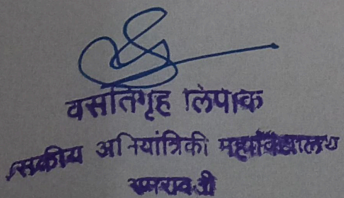 वसतिगृह लिपीक
सकीय अभियांत्रिकी महाविद्यालय
अमरावती